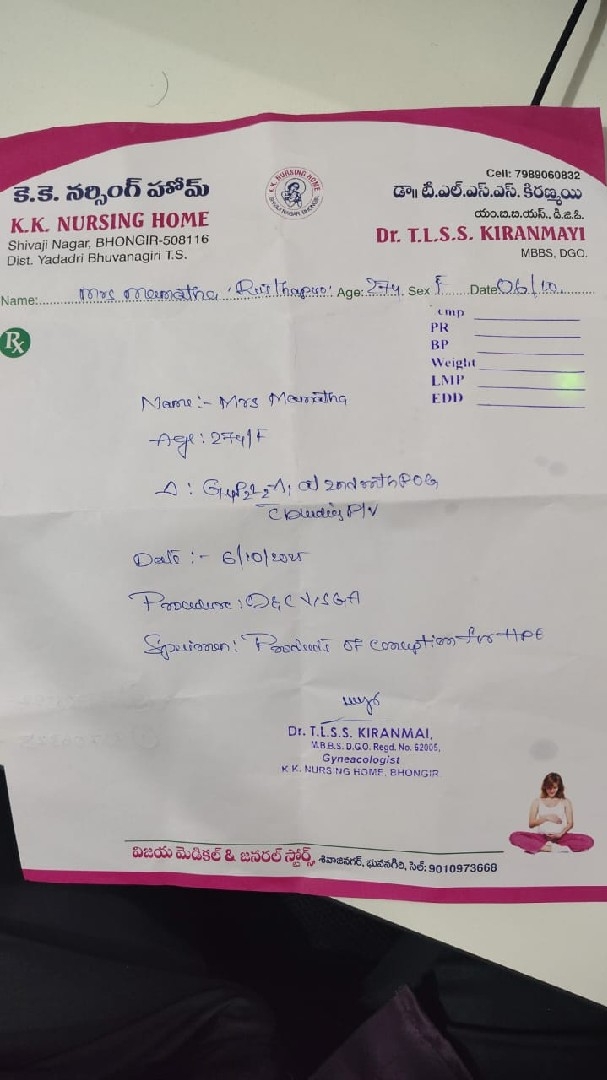 కె.కె. నర్సింగ్ హోమ్
K.K. NURSING HOME
Shivaji Nagar, BHONGIR-508116
Dist. Yadadri Bhuvanagiri T.S.
K.K. NURSING HOME
Cell: 7989060832
డా॥ టి.ఎల్.ఎస్.ఎస్. కిరణ్మయి
యం.బి.బి.యస్., డి.జి.ఓ.
Dr. T.L.S.S. KIRANMAYI
MBBS, DGO.
Name: Mrs Mamatha Age: 27y Sex F Date 06/10
Rx
Temp
PR
BP
Weight
LMP
EDD
Name:- Mrs Mamatha
Age: 27y/F
Date:- 6/10/2025
Procedure: D&C
Specimen: Products of conception for HPE
Dr. T.L.S.S. KIRANMAI,
M.B.B.S. D.G.O. Regd. No. 62005,
Gyneacologist
K.K. NURSING HOME, BHONGIR
విజయ మెడికల్ & జనరల్ స్టోర్స్, శివాజినగర్, భువనగిరి, సెల్: 9010973668